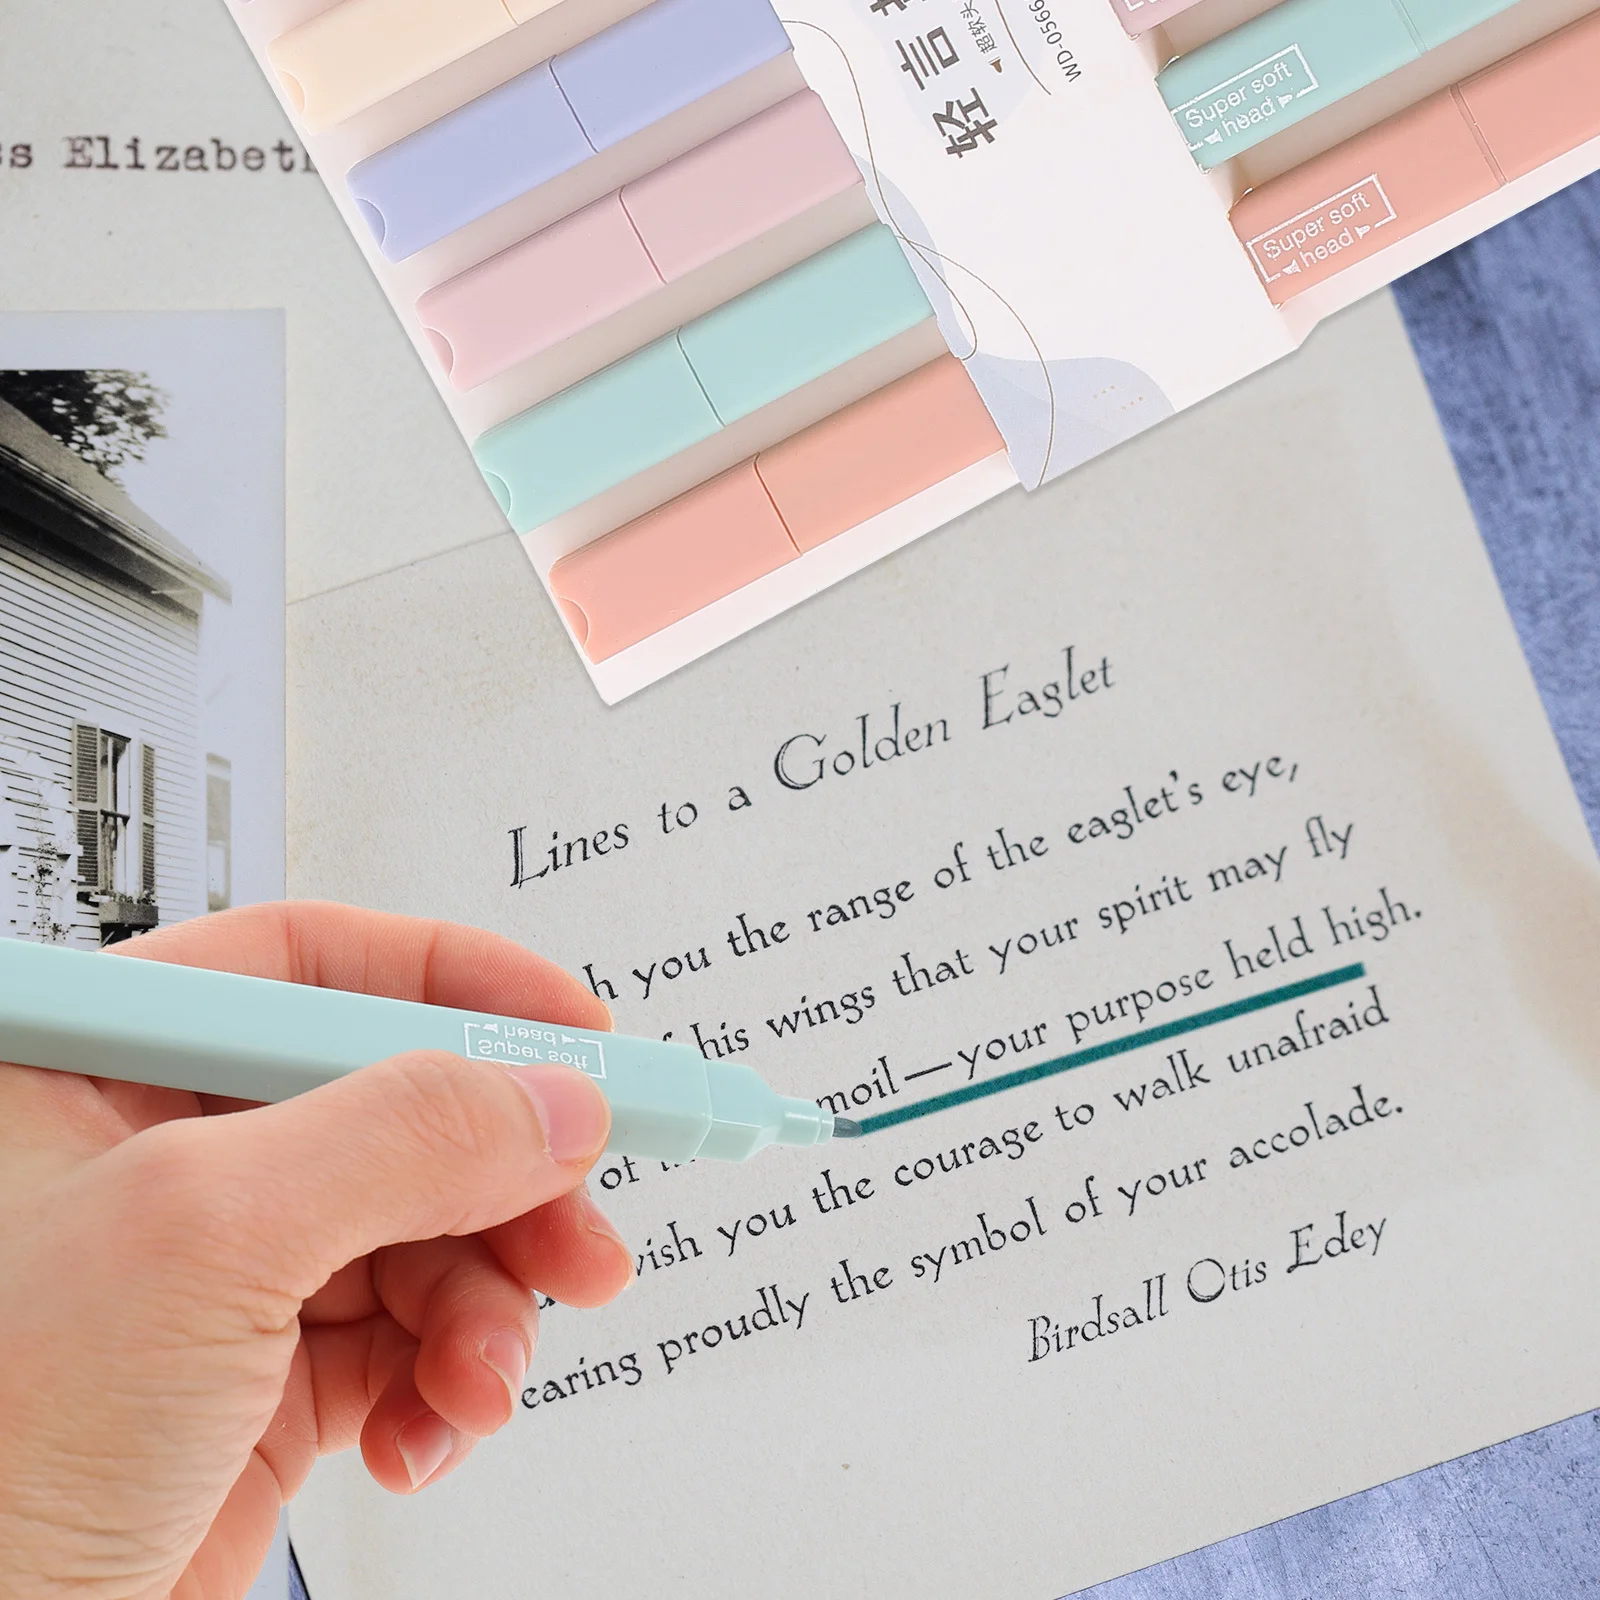 Elizabeth
轻言
超软头
WD-0566
Super soft
head
Super soft
head
Lines to a Golden Eaglet
you the range of the eaglet's eye,
his wings that your spirit may fly
moil—your purpose held high.
of
you the courage to walk unafraid
proudly the symbol of your accolade.
Birdsall Otis Edey
Super soft
head